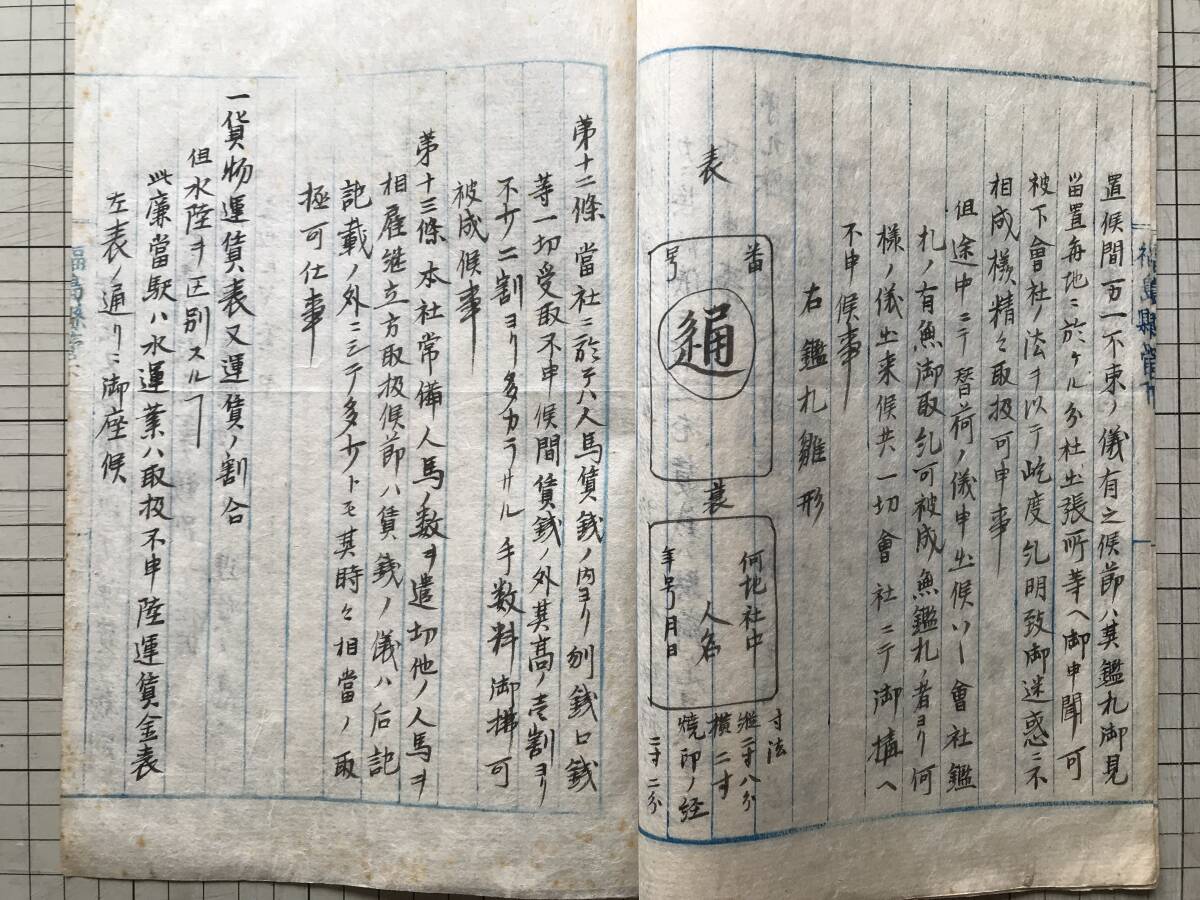 置候間万一不束ノ儀有之候節ハ其鑑札御見
留置毎地ニ於ケル分社出張所等ヘ御申聞可
被下會社ノ法ヲ以テ屹度糺明致御迷惑ニ不
相成様精々取扱可申事
但途中ニテ替荷ノ儀申出候ハー會社鑑
札ノ有無御取糺可被成無鑑札ノ者ヨリ何
様ノ儀出来候共一切會社ニテ御構ヘ
不申候事
右鑑札雛形
表
番
号
通
裏
何地社中
人名
年号月日
寸法
縦二寸八分
横二寸
焼印ノ経
二寸二分
第十二條當社ニ於テハ人馬賃銭ノ内ヨリ刎銭口銭
等一切受取不申候間賃銭ノ外其高ノ壱割ヨリ
不少二割ヨリ多カラサル手数料御拂可
被成候事
第十三條本社常備人馬ノ数ヲ遣切他ノ人馬ヲ
相雇継立方取扱候節ハ賃銭ノ儀ハ后記
記載ノ外ニシテ多少トモ其時々相當ノ取
極可仕事
一貨物運賃表又運賃ノ割合
但水陸ヲ区別スルヿ
此廉當駅ハ水運業ハ取扱不申陸運賃金表
左表ノ通リニ御座候
福島縣管下